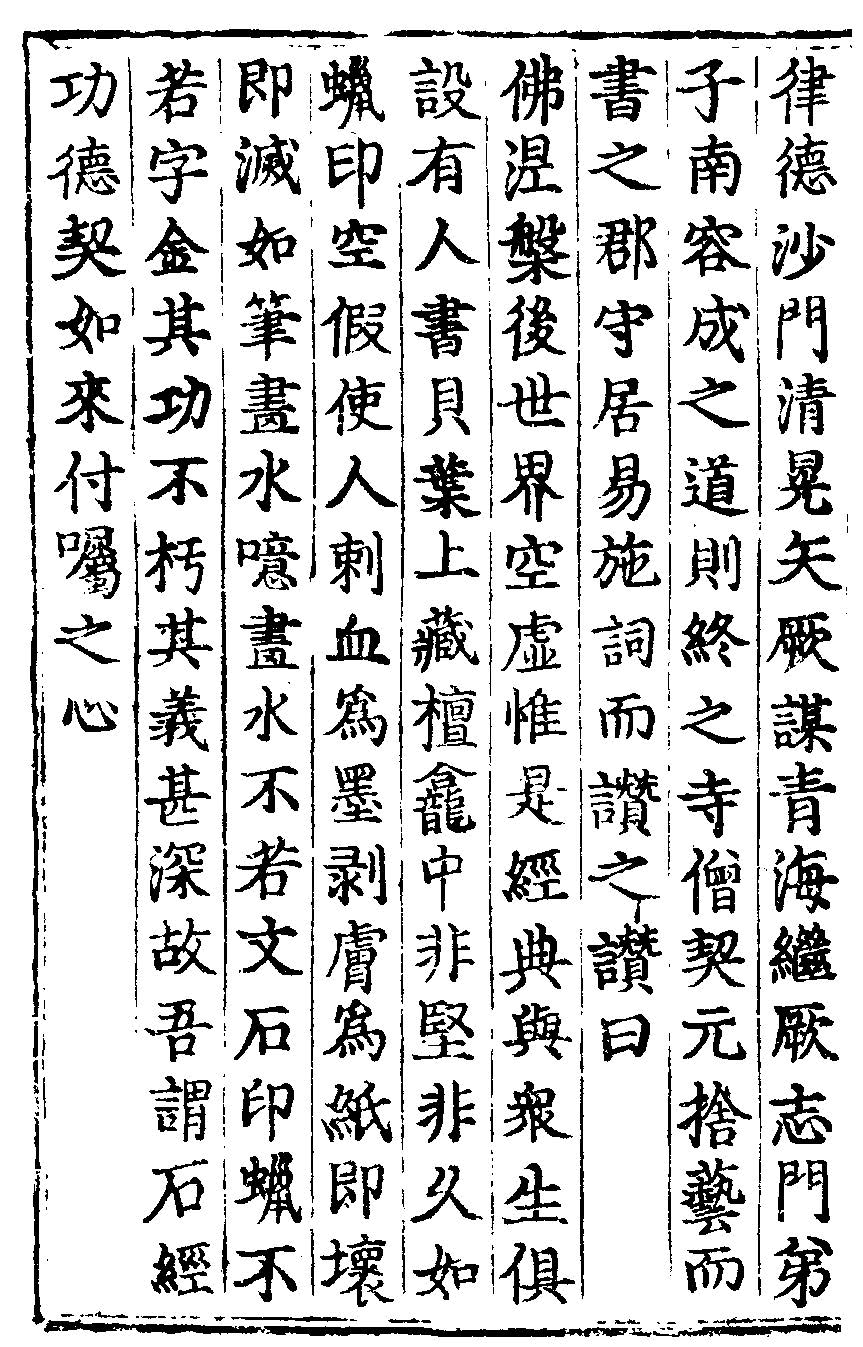 律德沙門清晃矢厥謀青海繼厥志門弟
子南容成之道則終之寺僧契元捨藝而
書之郡守居易施詞而讚之讚曰
佛涅槃後世界空虛惟是經典與衆生俱
設有人書貝葉上藏檀龕中非堅非久如
蠟印空假使人刺血爲墨剥膚爲紙即壞
即滅如筆畫水噫畫水不若文石印蠟不
若字金其功不朽其義甚深故吾謂石經
功德契如來付囑之心